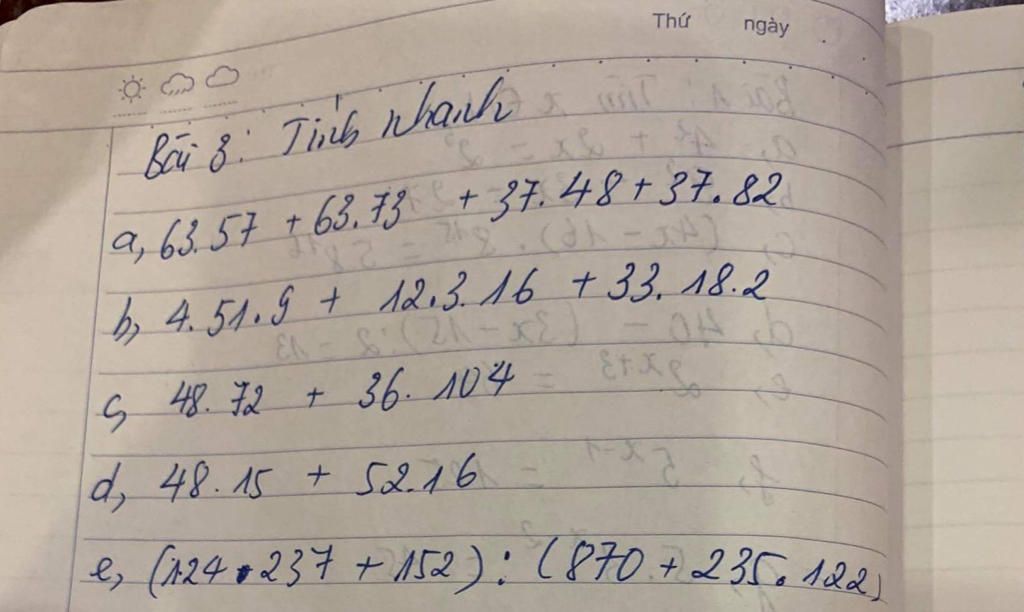 Thứ ngày
Bài 3: Tính nhanh
a, 63.57 + 63.73 + 37.48 + 37.82
b, 4.51.9 + 12.3.16 + 33.18.2
c, 48.72 + 36.104
d, 48.15 + 52.16
e, (124.237 + 152) : (870 + 235.122)